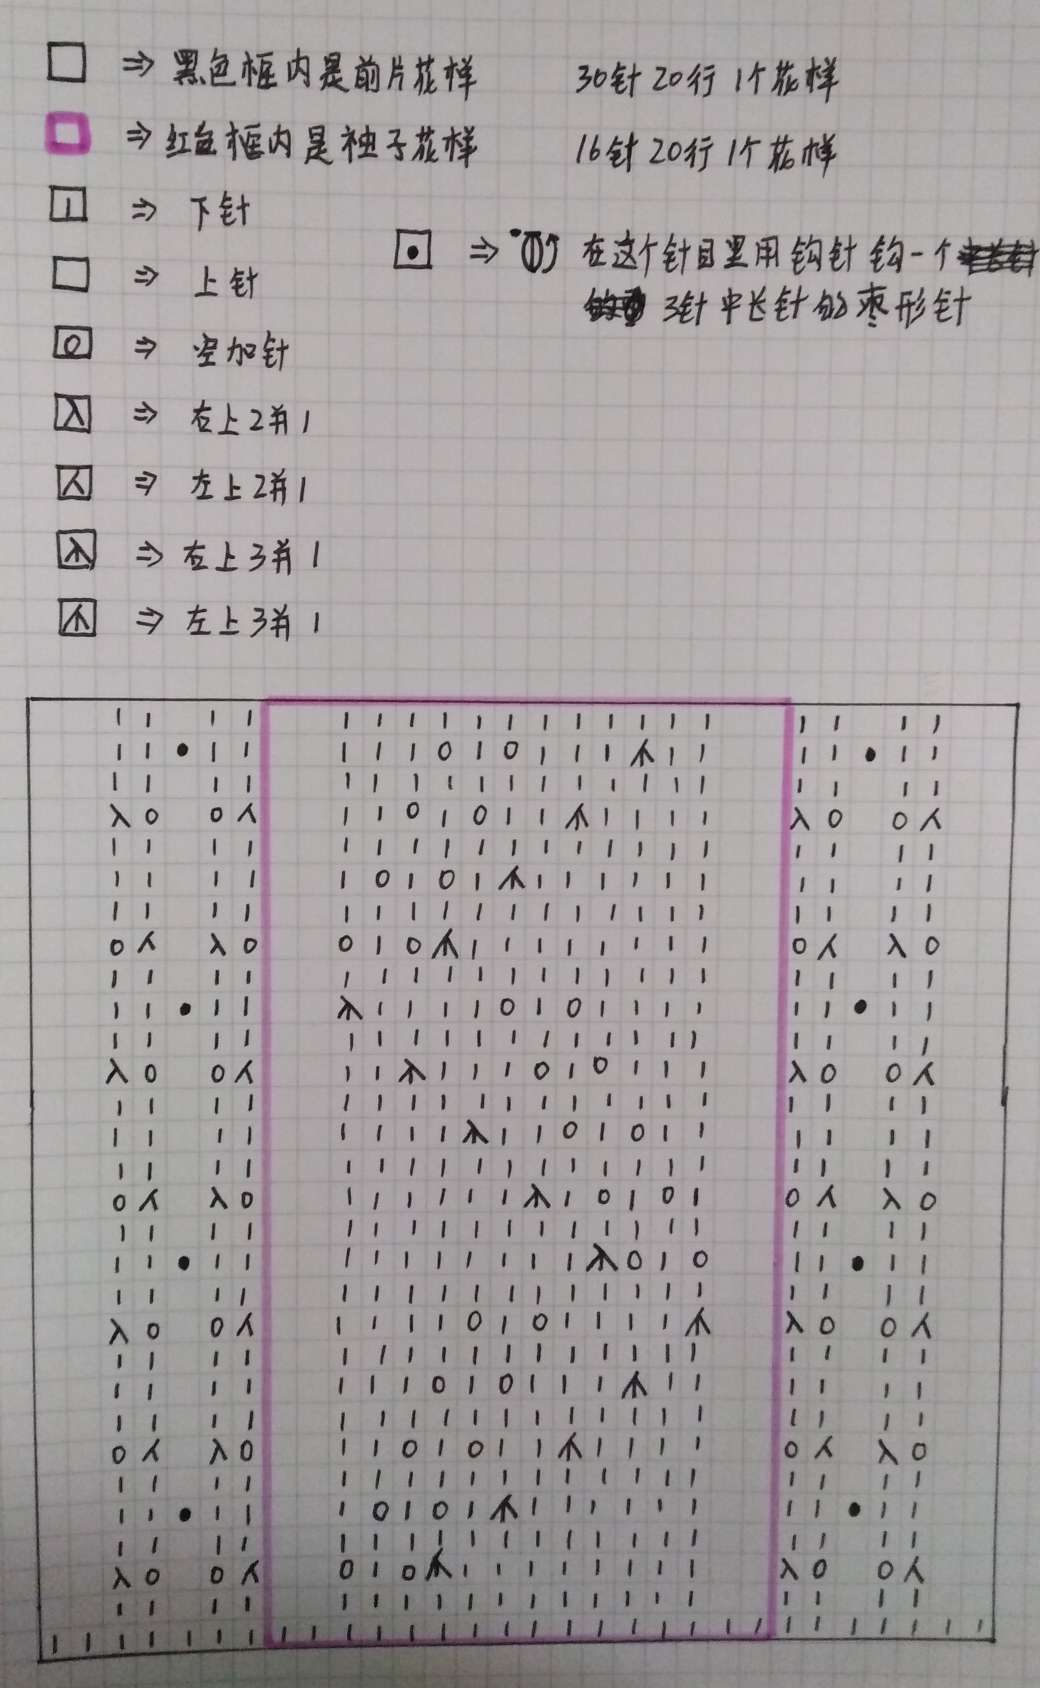 ⇒ 黑色框内是前片花样 30针20行1个花样
⇒ 红色框内是袖子花样 16针20行1个花样
⇒ 下针
⇒ 在这个针目里用钩针钩一个
3针中长针的枣形针
⇒ 上针
⇒ 空加针
⇒ 右上2并1
⇒ 左上2并1
⇒ 右上3并1
⇒ 左上3并1